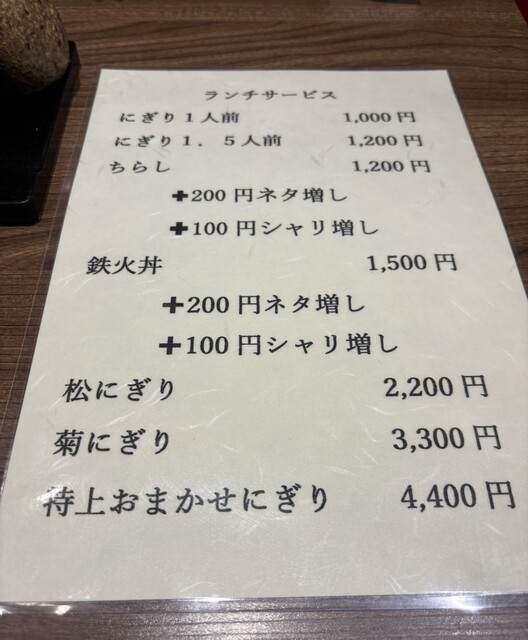 ランチサービス
にぎり１人前 1,000円
にぎり１．５人前 1,200円
ちらし 1,200円
✚200円ネタ増し
✚100円シャリ増し
鉄火丼 1,500円
✚200円ネタ増し
✚100円シャリ増し
松にぎり 2,200円
菊にぎり 3,300円
特上おまかせにぎり 4,400円